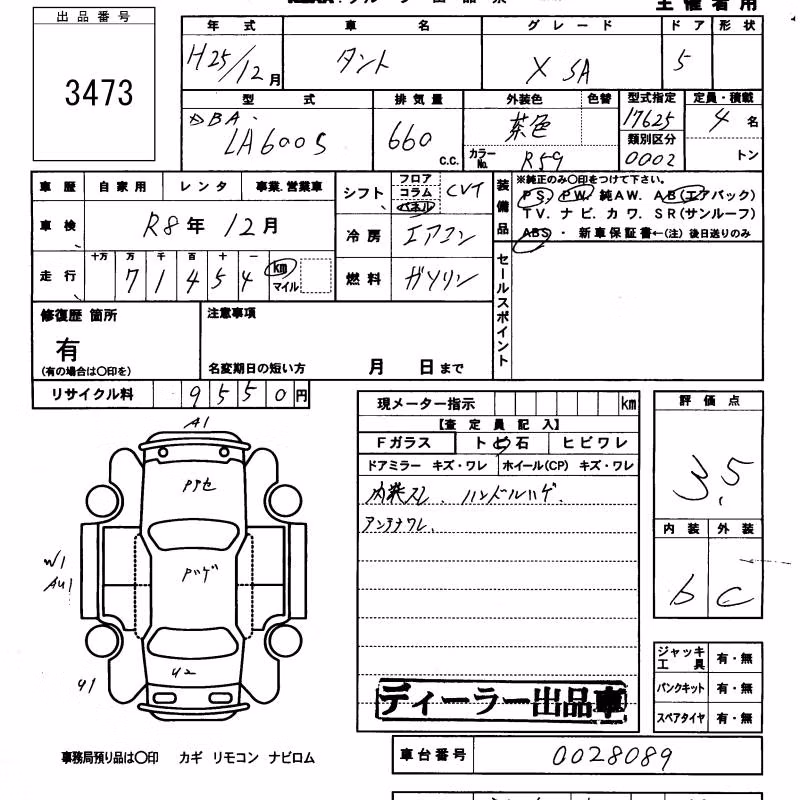 主催者用
出品番号
3473
年式 車名 グレード ドア 形状
H25/12月 タント X SA 5
型式 排気量 外装色 色替 型式指定 定員・積載
DBA- LA600S 660 C.C. 茶色 17625 4名
カラーNo. R59 類別区分 0002 トン
車歴 自家用 レンタ 事業.営業車
シフト フロア コラム パネル CVT
装備品 ※純正のみ〇印をつけて下さい。
PS. PW. 純AW. AB(エアバック)
TV. ナビ. カワ. SR(サンルーフ)
ABS・ 新車保証書←(注) 後日送りのみ
車検 R8年 12月
冷房 エアコン
走行 十万 万 千 百 十 一
71454 km マイル
燃料 ガソリン
セールスポイント
修復歴 箇所
有
(有の場合は〇印を)
注意事項
名変期日の短い方 月 日まで
リサイクル料 9550円
現メーター指示 km
【査定員記入】
Fガラス ト ビ 石 ヒビワレ
ドアミラー キズ・ワレ ホイール(CP) キズ・ワレ
内装スレ. ハンドルハゲ.
アンテナワレ.
評価点
3.5
内装 外装
b C
A1
Pアセ
Pハゲ
W1
AU1
U2
U1
ジャッキ工具 有・無
パンクキット 有・無
スペアタイヤ 有・無
ディーラー出品車
事務局預り品は〇印 カギ リモコン ナビロム
車台番号 0028089